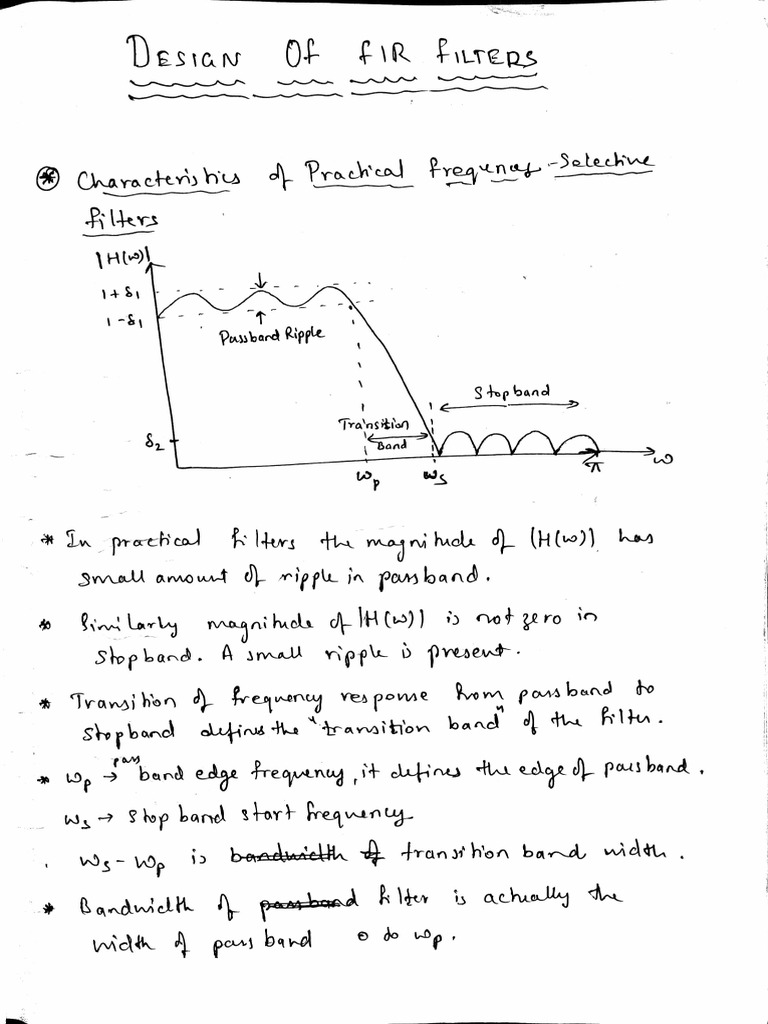 DESIGN OF FIR FILTERS
* Characteristics of Practical frequency-Selective
filters
|H(ω)|
1+δ₁
1-δ₁
Passband Ripple
Stopband
Transition
Band
δ₂
ωp
ωs
π
ω
* In practical filters the magnitude of |H(ω)| has
small amount of ripple in passband.
* Similarly magnitude of |H(ω)| is not zero in
stopband. A small ripple is present.
* Transition of frequency response from passband to
stopband defines the "transition band" of the filter.
* ωp → pass band edge frequency, it defines the edge of passband.
ωs → stop band start frequency
. ωs - ωp is bandwidth of transition band width.
* Bandwidth of passband filter is actually the
width of pass band 0 to ωp.